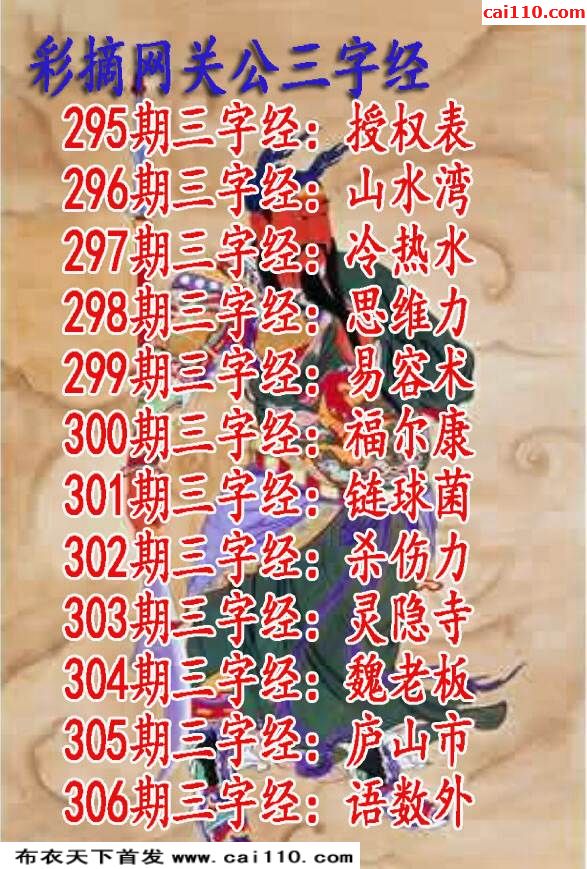 cai110.com
彩摘网关公三字经
295期三字经：授权表
296期三字经：山水湾
297期三字经：冷热水
298期三字经：思维力
299期三字经：易容术
300期三字经：福尔康
301期三字经：链球菌
302期三字经：杀伤力
303期三字经：灵隐寺
304期三字经：魏老板
305期三字经：庐山市
306期三字经：语数外
布衣天下首发 www.cai110.com